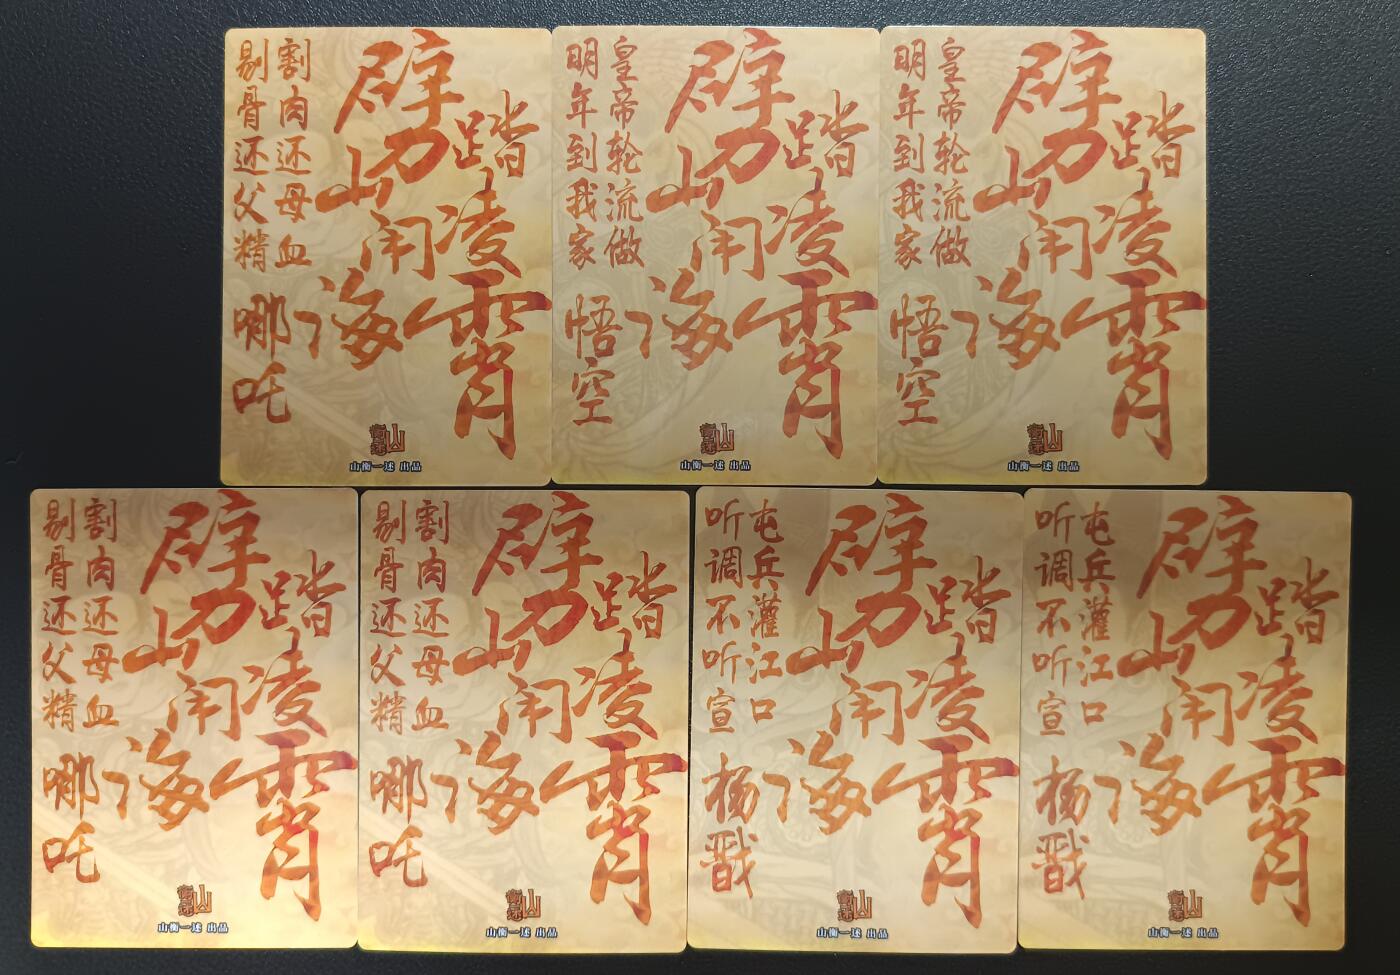 踏凌霄
劈山闹海
割肉还母血
剔骨还父精
哪吒
山衡一述
山衡一述 出品
踏凌霄
劈山闹海
皇帝轮流做
明年到我家
悟空
山衡一述
山衡一述 出品
踏凌霄
劈山闹海
皇帝轮流做
明年到我家
悟空
山衡一述
山衡一述 出品
踏凌霄
劈山闹海
割肉还母血
剔骨还父精
哪吒
山衡一述
山衡一述 出品
踏凌霄
劈山闹海
割肉还母血
剔骨还父精
哪吒
山衡一述
山衡一述 出品
踏凌霄
劈山闹海
屯兵灌江口
听调不听宣
杨戬
山衡一述
山衡一述 出品
踏凌霄
劈山闹海
屯兵灌江口
听调不听宣
杨戬
山衡一述
山衡一述 出品